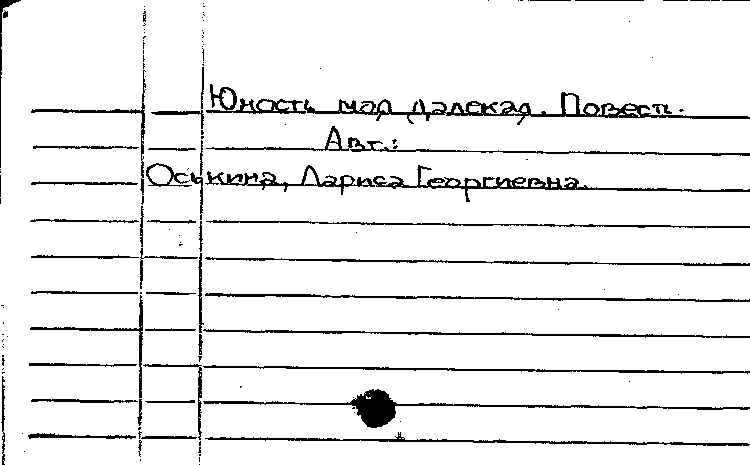 Юность моя далекая. Повесть.
Авт.:
Оськина, Лариса Георгиевна.